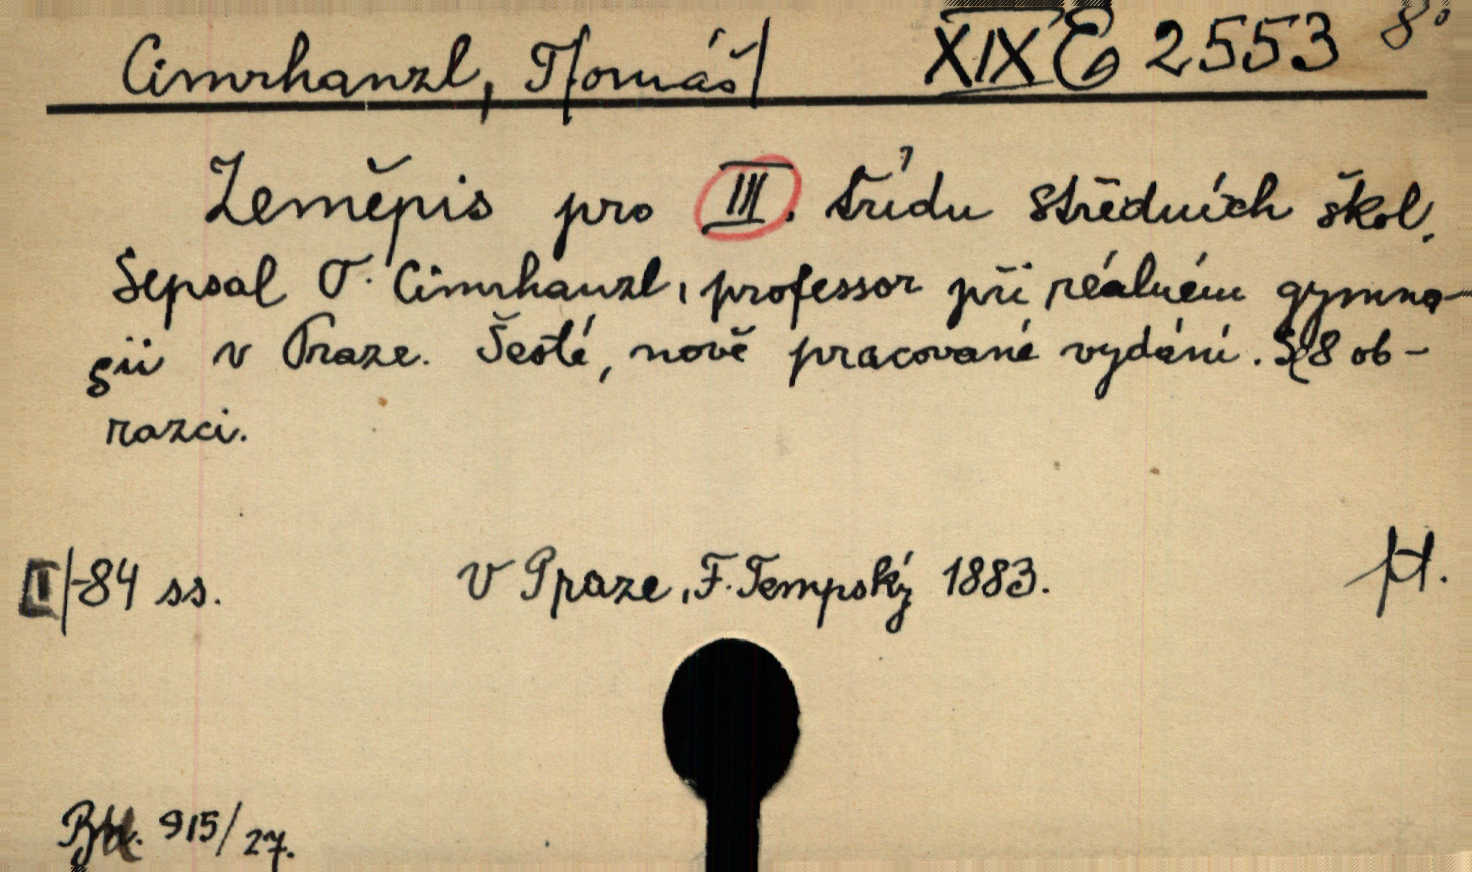 Cimrhanzl, T/omáš/ XIX E 2553 8°
Zeměpis pro III. třídu středních škol.
Sepsal T. Cimrhanzl, professor při reálném gymna-
sii v Praze. Šesté, nově pracované vydání. S 8 ob-
razci.
I/-84 ss. V Praze, F. Tempský 1883.
915/27.